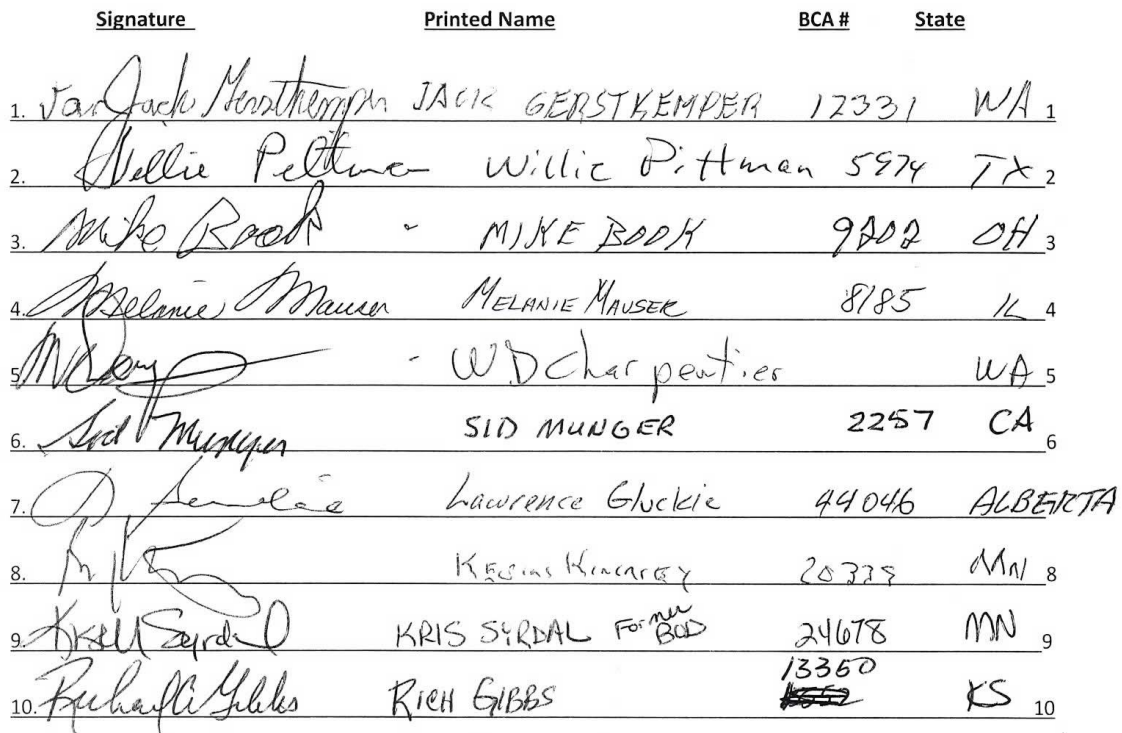 Signature Printed Name BCA # State
1. Van Jack Gerstkemper JACK GERSTKEMPER 12331 WA 1
2. Willie Pittman Willie Pittman 5974 TX 2
3. Mike Book - MIKE BOOK 9202 OH 3
4. Melanie Mauser MELANIE MAUSER 8185 IL 4
5. - WD Charpentier WA 5
6. Sid Munger SID MUNGER 2257 CA 6
7. Lawrence Gluckie 44046 ALBERTA
8. MN 8
9. Kris Syrdal KRIS SYRDAL Former BOD 24678 MN 9
13350
10. Richard A Gibbs RICH GIBBS KS 10